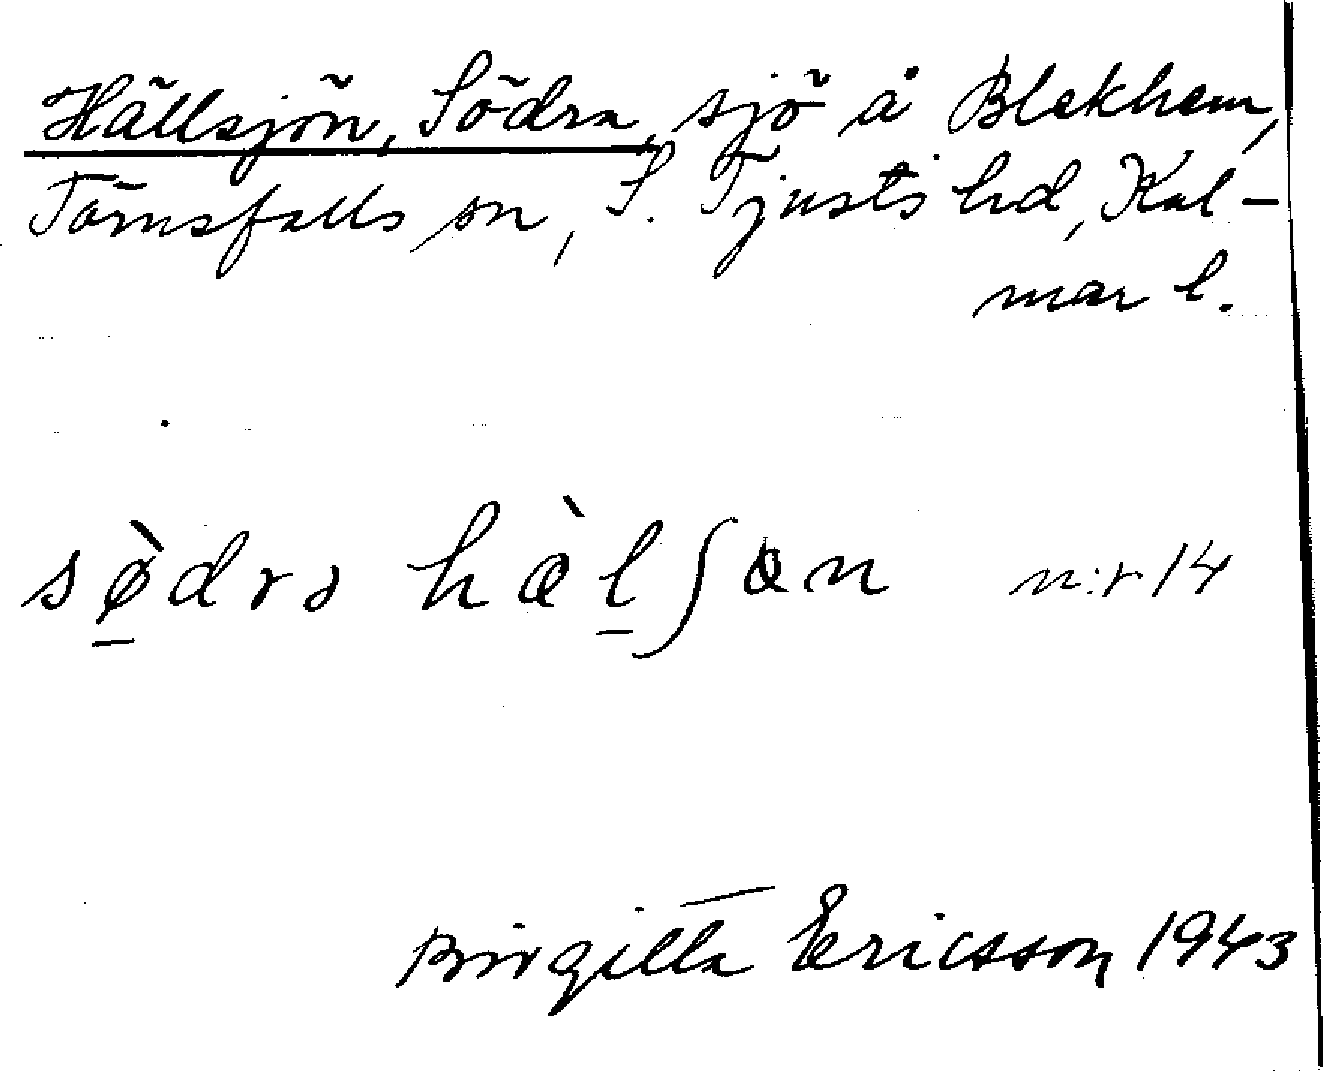 Hällsjön, Södra, sjö å Blekhem,
Törnsfalls sn, S. Tjusts hd, Kal-
mar l.
sø̱̀drə hæ̀ḻʃæn n:r 14
Birgitta Ericsson 1943